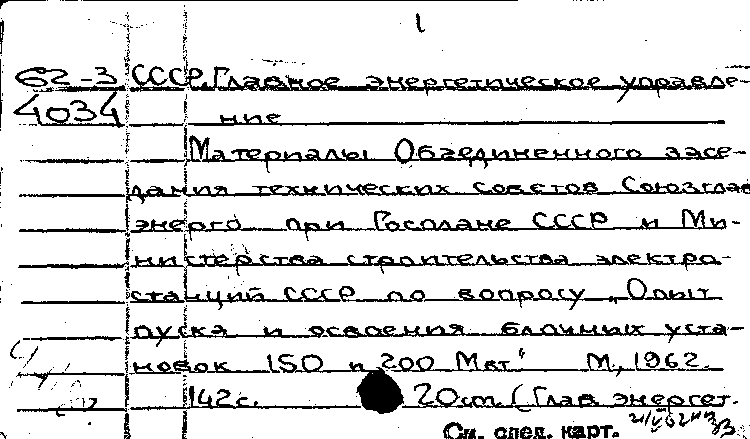 1
62-3 СССР. Главное энергетическое управле-
4034 ние
Материалы Объединенного засе-
дания технических советов Союзглав
энерго при Госплане СССР и Ми-
нистерства строительства электро-
станций СССР по вопросу „Опыт
пуска и освоения блочных уста-
новок 150 и 200 Мвт." М., 1962.
142 с. 20 см. (Глав. энергет.
См. след. карт.